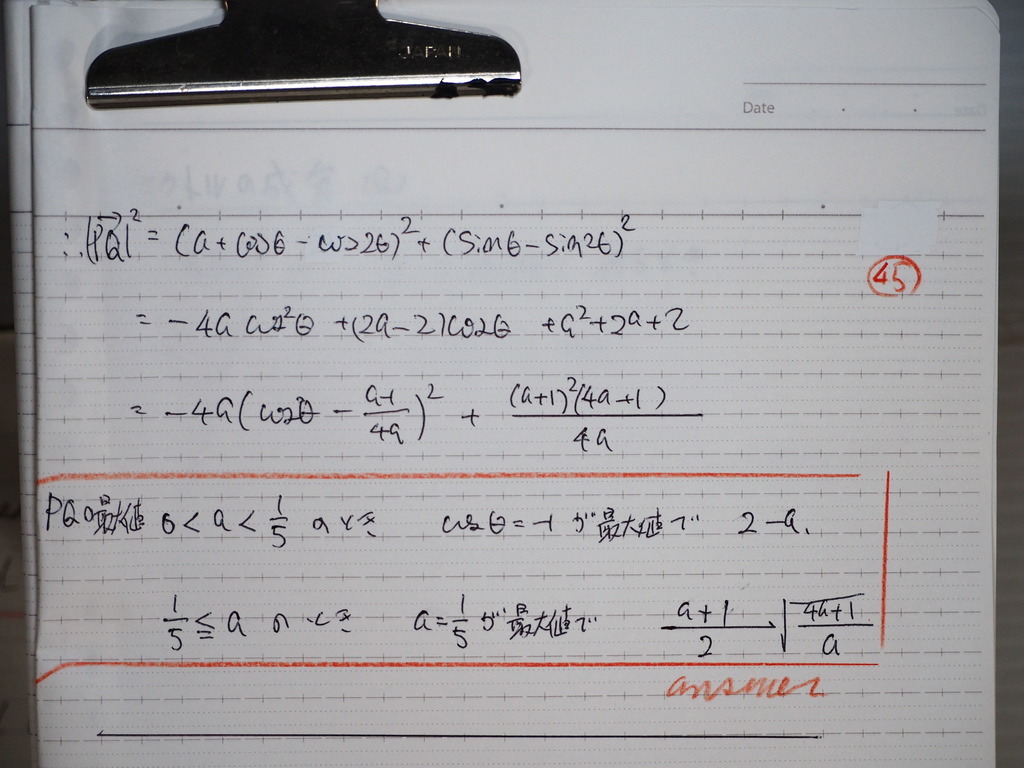 JAPAN
Date
∴ |PQ→|² = (a + cosθ - cos2θ)² + (sinθ - sin2θ)²
45
= -4a cos²θ + (2a-2)cosθ + a² + 2a + 2
= -4a(cosθ - (a-1)/4a)² + (a+1)²(4a+1)/4a
PQの最大値 0 < a < 1/5 のとき cosθ = -1 が最大値で 2-a.
1/5 ≦ a のとき a = 1/5 が最大値で (a+1)/2 √((4a+1)/a)
answer